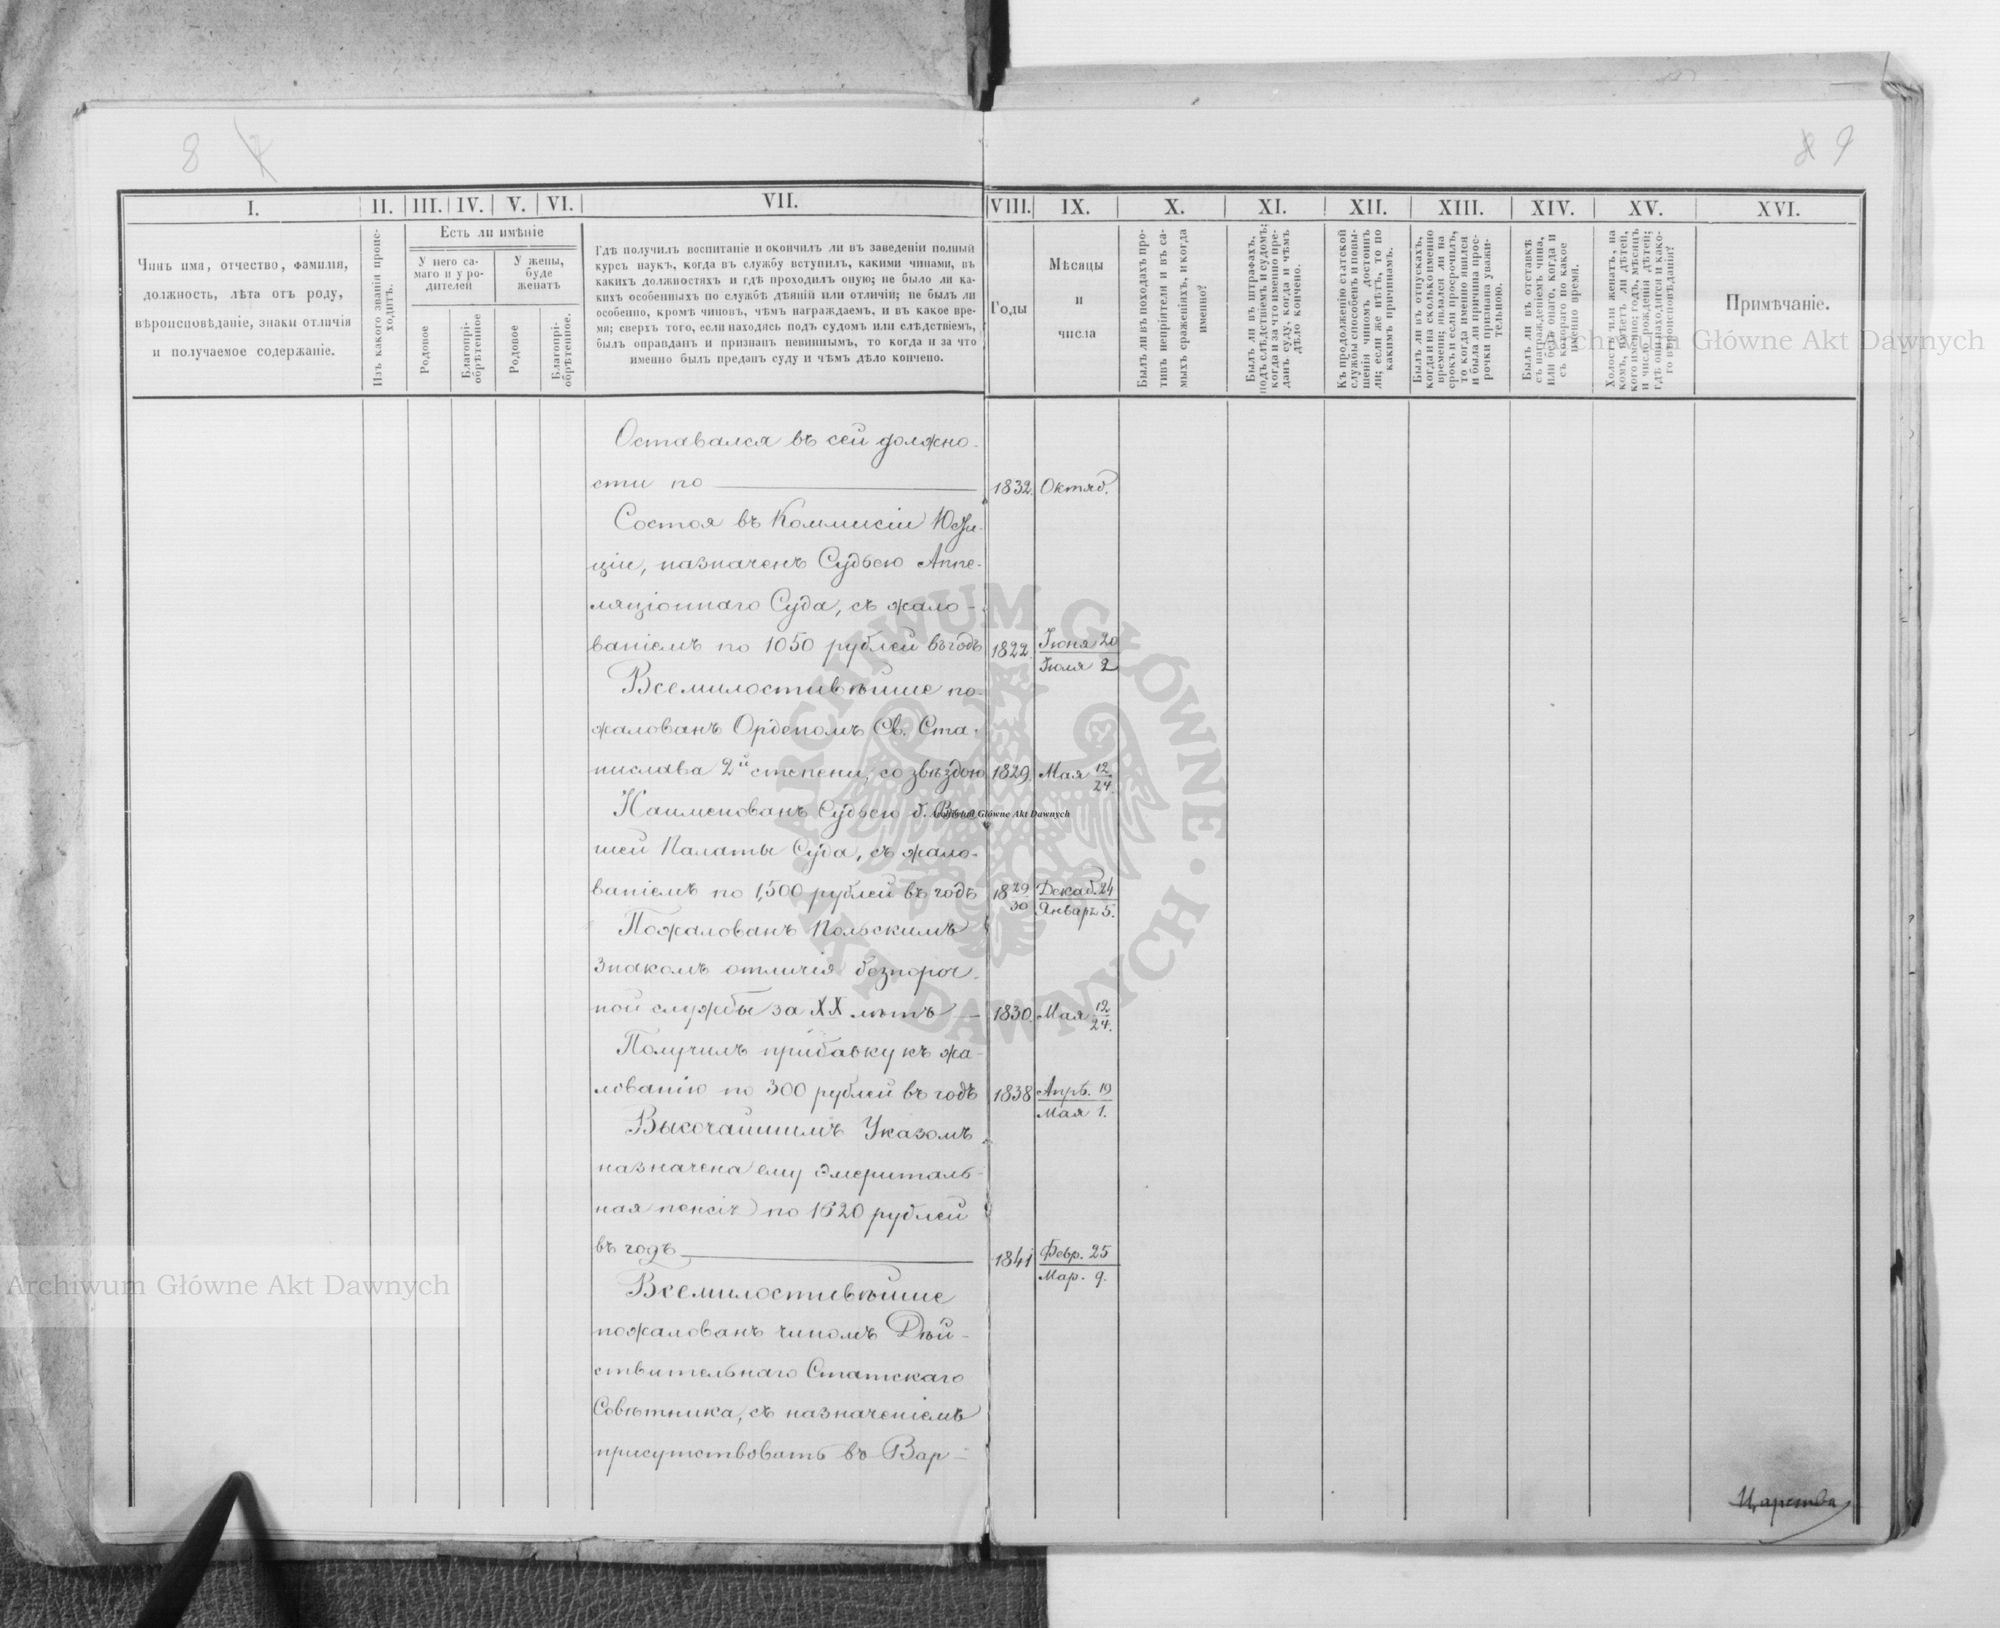 8 7
8 9
I.
II.
III.
IV.
V.
VI.
VII.
VIII.
IX.
X.
XI.
XII.
XIII.
XIV.
XV.
XVI.
Чинъ имя, отчество, фамилія,
должность, лѣта отъ роду,
вѣроисповѣданіе, знаки отличія
и получаемое содержаніе.
Изъ какого званія проис-
ходитъ.
Есть ли имѣніе
У него са-
маго и у ро-
дителей
У жены,
буде
женатъ
Родовое
Благопрі-
обрѣтенное
Родовое
Благопрі-
обрѣтенное.
Гдѣ получилъ воспитаніе и окончилъ ли въ заведеніи полный
курсъ наукъ, когда въ службу вступилъ, какими чинами, въ
какихъ должностяхъ и гдѣ проходилъ оную; не было ли ка-
кихъ особенныхъ по службѣ дѣяній или отличій; не былъ ли
особенно, кромѣ чиновъ, чѣмъ награждаемъ, и въ какое вре-
мя; сверхъ того, если находясь подъ судомъ или слѣдствіемъ,
былъ оправданъ и признанъ невиннымъ, то когда и за что
именно былъ преданъ суду и чѣмъ дѣло кончено.
Годы
Мѣсяцы
и
числа
Былъ ли въ походахъ про-
тивъ непріятеля и въ са-
мыхъ сраженіяхъ, и когда
именно?
Былъ ли въ штрафахъ,
подъ слѣдствіемъ и судомъ;
когда и за что именно пре-
данъ суду, когда и чѣмъ
дѣло кончено.
Къ продолженію статской
службы способенъ и повы-
шенія чиномъ достоинъ
ли; если же нѣтъ, то по
какимъ причинамъ.
Былъ ли въ отпускахъ,
когда и на сколько именно
времени; являлся ли на
срокъ и если просрочилъ,
то когда именно явился
и была ли причина прос-
рочки признана уважи-
тельною.
Былъ ли въ отставкѣ
съ награжденіемъ чина,
или безъ онаго, когда и
съ котораго по какое
именно время.
Холостъ или женатъ, на
комъ, имѣетъ ли дѣтей,
кого именно; годъ, мѣсяцъ
и число рожденія дѣтей;
гдѣ они находятся и како-
го вѣроисповѣданія?
Примѣчаніе.
Оставался въ сей должно-
сти по 1832. Октяб.
Состоя въ Коммисіи Юсти-
ціи, назначенъ Судьею Аппе-
ляціоннаго Суда, съ жало-
ваніемъ по 1050 рублей въ годъ 1822 Іюня 20
Іюля 2
Всемилостивѣйше по-
жалованъ Орденомъ Св. Ста-
нислава 2й степени, со звѣздою 1829. Мая 12
24.
Наименованъ Судьею б. Выс
шей Палаты Суда, съ жало-
ваніемъ по 1,500 рублей въ годъ 18 29 Декаб. 24
30 Январь 5.
Пожалованъ Польскимъ
Знакомъ отличія безпороч-
ной службы за XX лѣтъ 1830. Мая 12
24.
Получилъ прибавку къ жа-
лованію по 300 рублей въ годъ 1838 Апрѣ. 19
Мая 1.
Высочайшимъ Указомъ
назначена ему Эмериталь-
ная пенсія по 1620 рублей
въ годъ 1841 Февр. 25
Мар. 9.
Всемилостивѣйше
пожалованъ чиномъ Дѣй-
ствительнаго Статскаго
Совѣтника, съ назначеніемъ
присутствовать въ Вар-
Царства
ARCHIWUM GŁÓWNE AKT DAWNYCH
Archiwum Główne Akt Dawnych
Archiwum Główne Akt Dawnych
Archiwum Główne Akt Dawnych